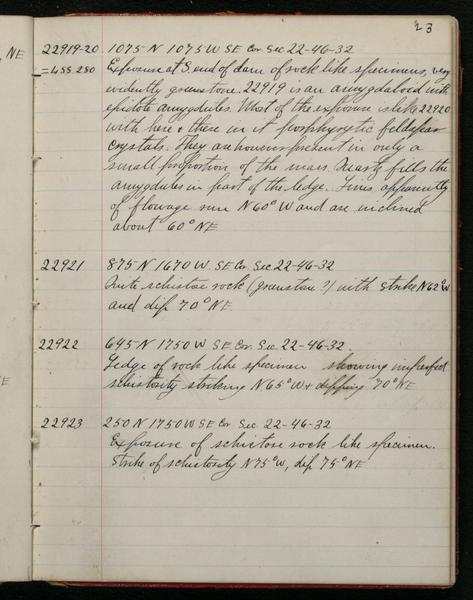 23
NE
22919-20 1075 N 1075 W SE Cor. Sec 22-46-32
=488 280 Exposure at S. end of dam of rock like specimens, very
evidently greenstone. 22919 is an amygdaloid with
epidote amygdules. Most of the exposure is like 22920
with here & there in it porphyritic feldspar
crystals. They are however present in only a
small proportion of the mass. Quartz fills the
amygdules in part of the ledge. Lines apparently
of flowage run N 60° W and are inclined
about 60° NE.
22921 875 N 1670 W. SE Cor. Sec 22-46-32
Quite schistose rock (greenstone?) with strike N 62° W
and dip 70° NE.
22922 645 N 1750 W SE Cor. Sec 22-46-32.
Ledge of rock like specimen showing imperfect
schistosity striking N 65° W & dipping 70° NE
22923 250 N 1750 W SE Cor. Sec 22-46-32
Exposure of schistose rock like specimen.
Strike of schistosity N 75° W, dip 75° NE